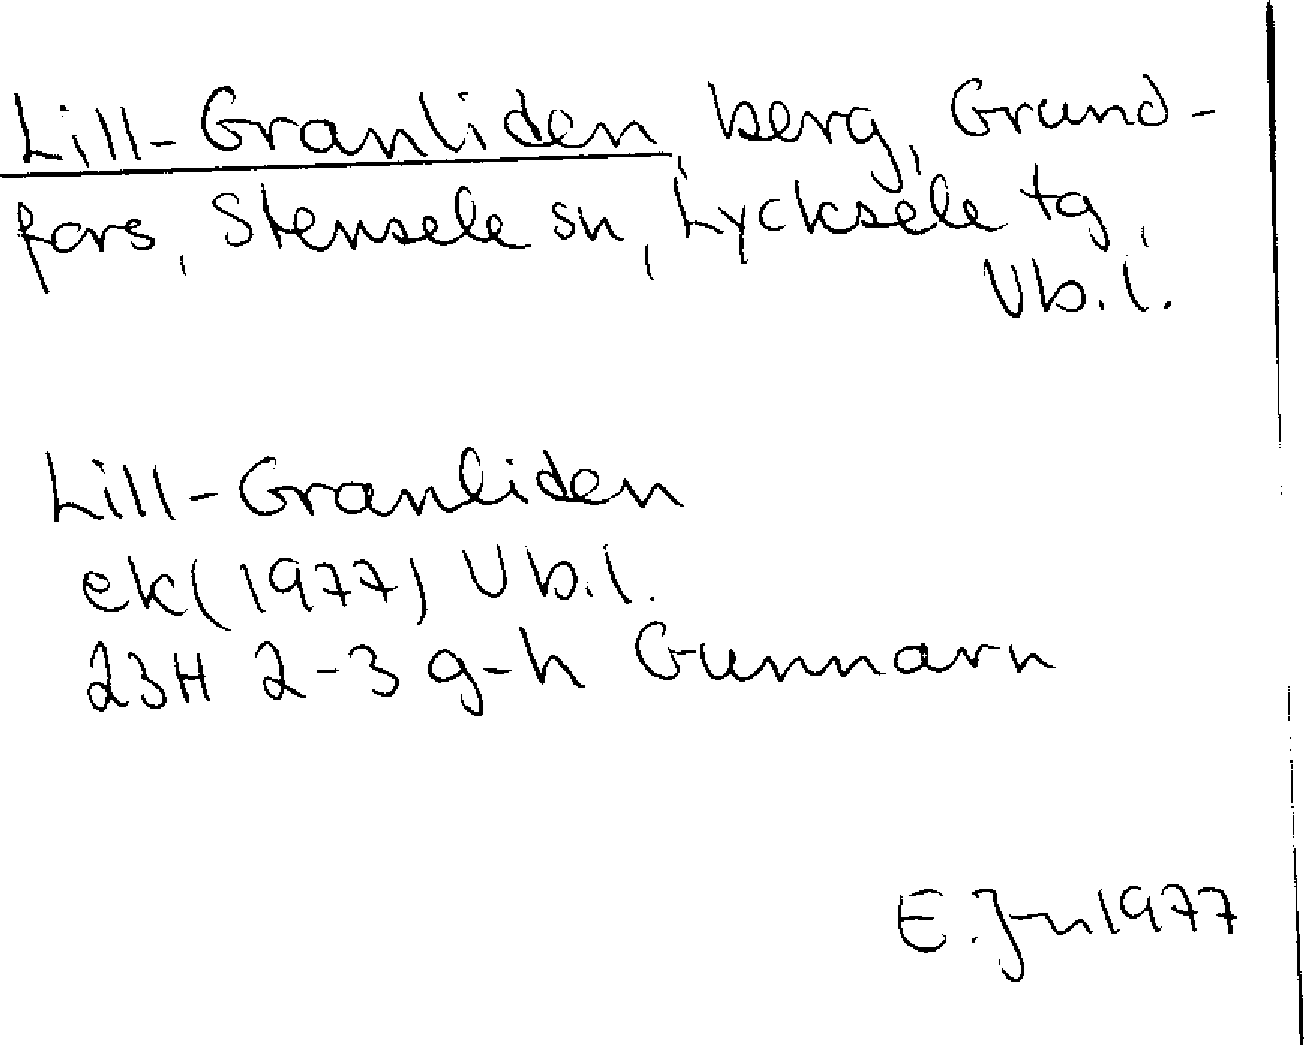 Lill-Granliden, berg, Grund-
fors, Stensele sn, Lycksele tg,
Vb. l.
Lill-Granliden
ek (1977) Vb. l.
23H 2-3 g-h Gunnarn
E. Jn 1977